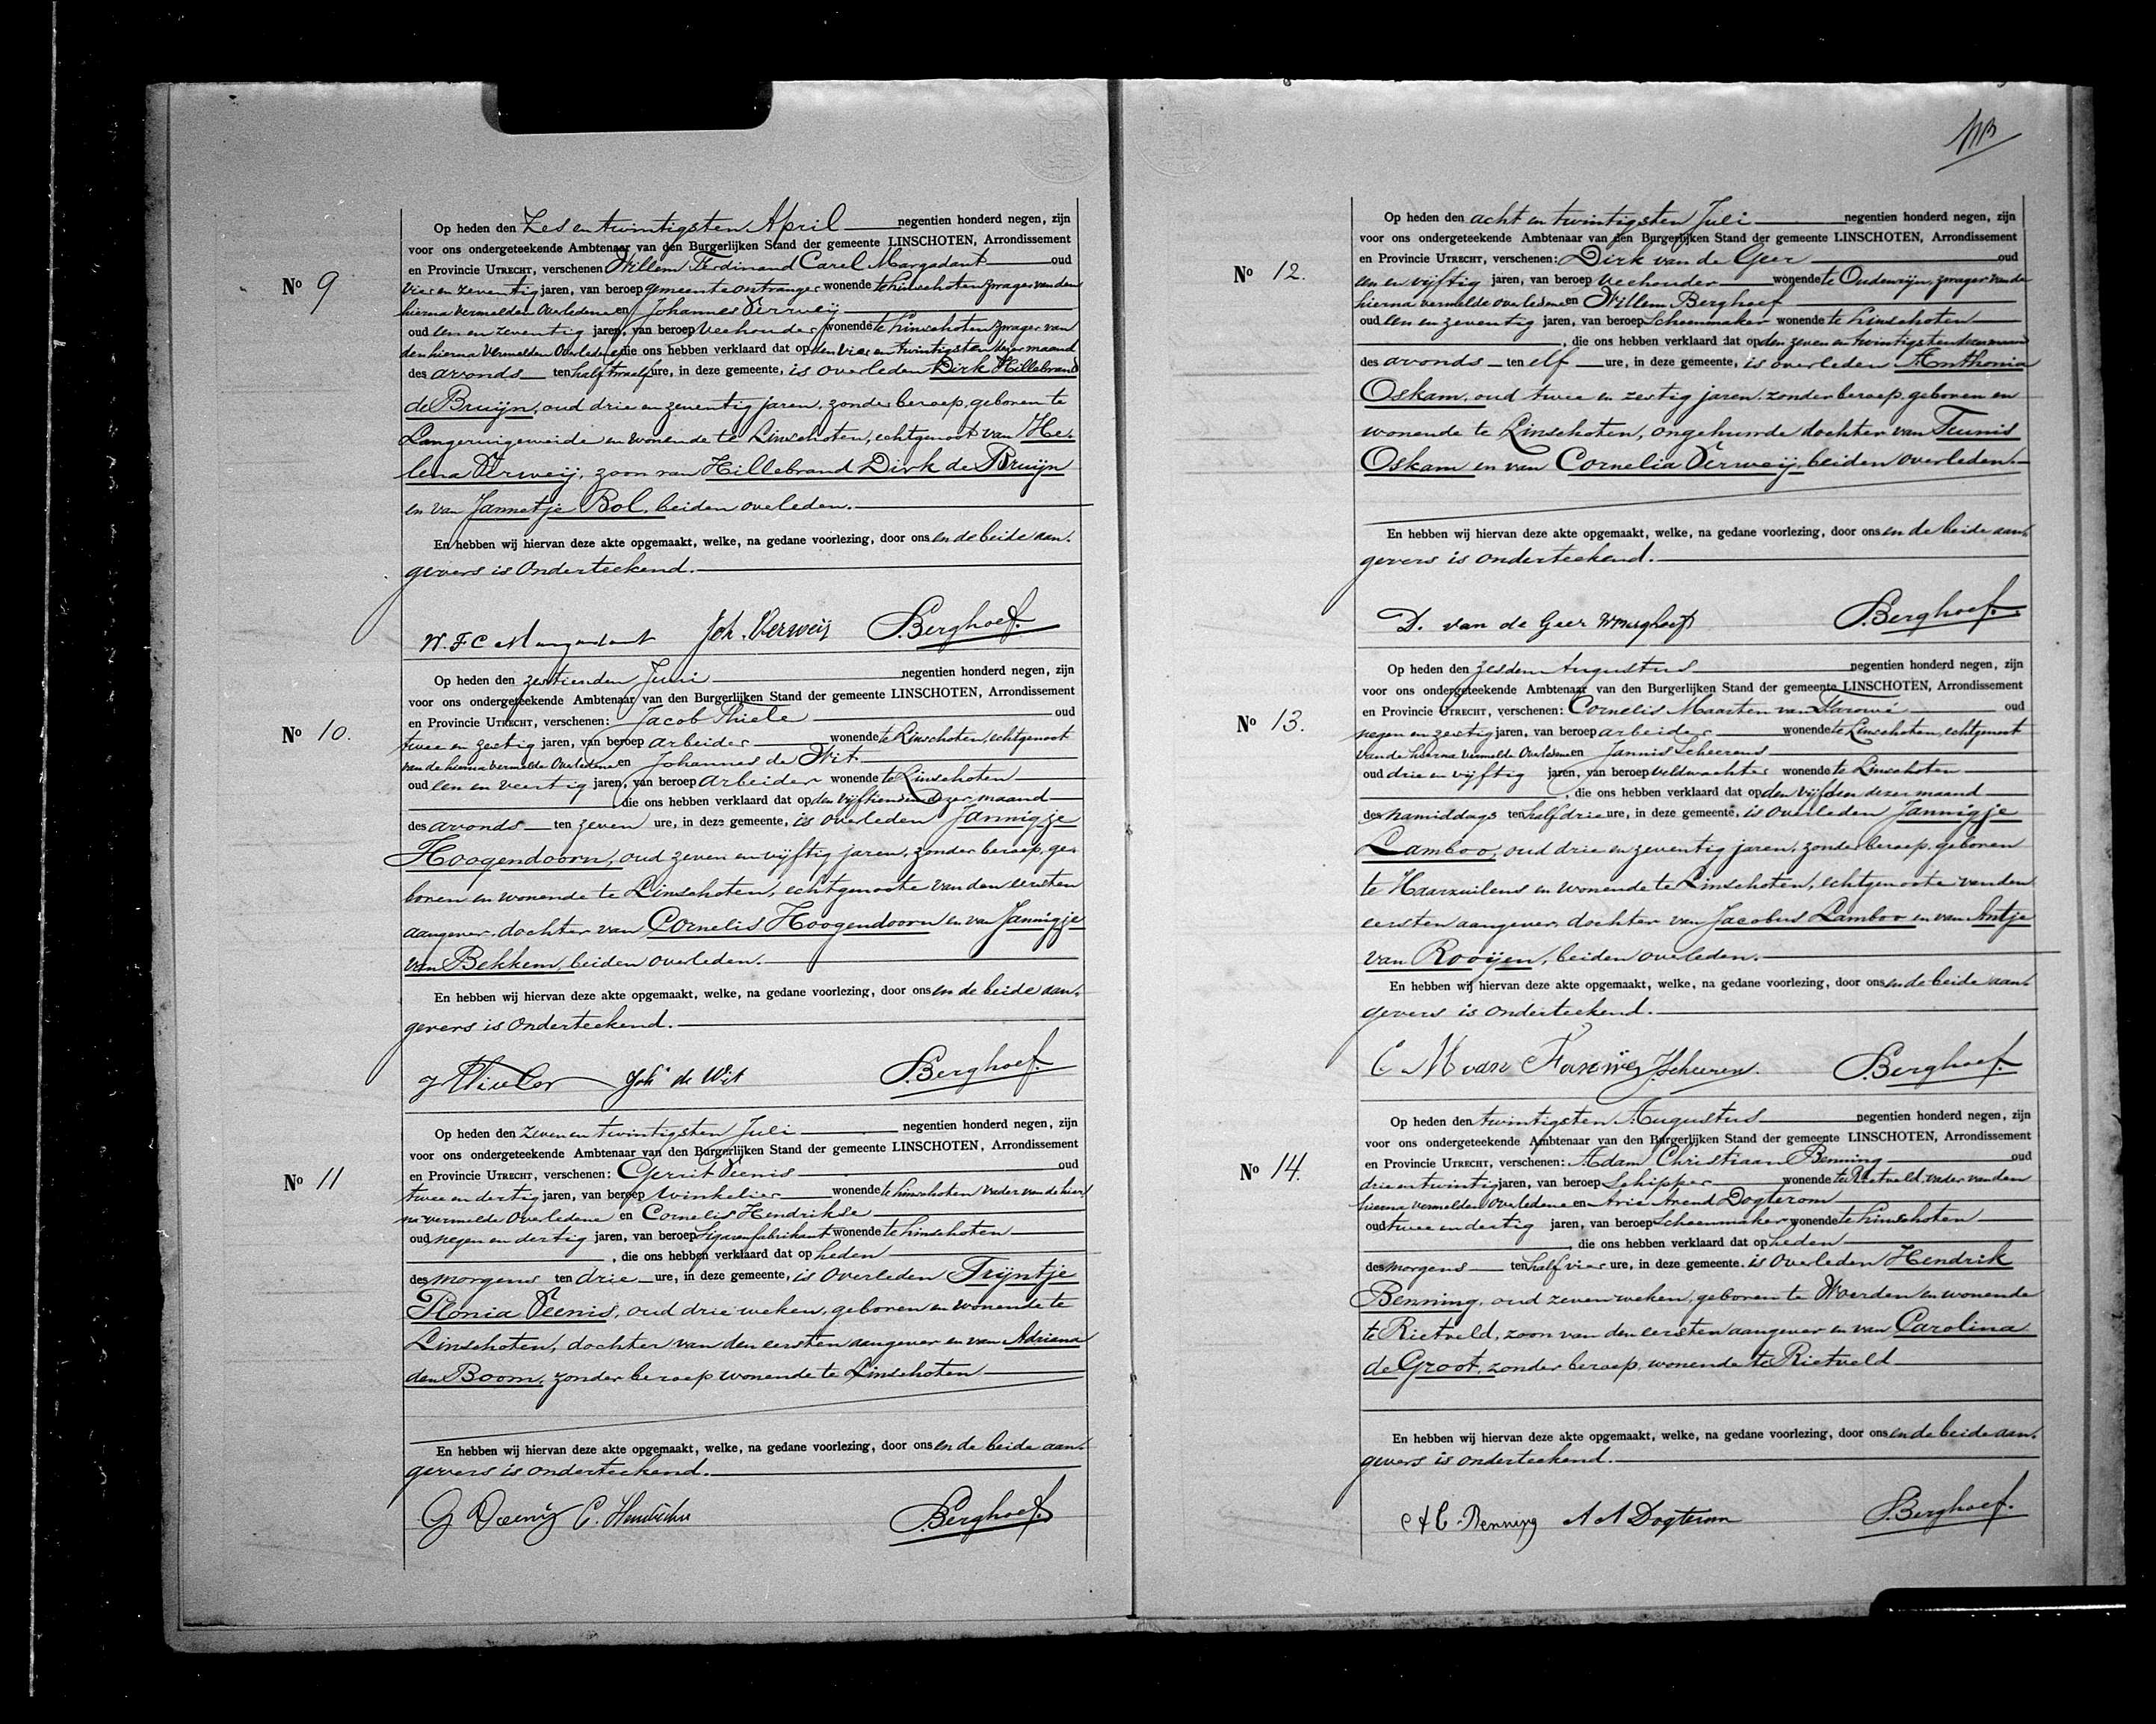 Nº 9
Op heden den Zes en twintigsten April negentien honderd negen, zijn
voor ons ondergeteekende Ambtenaar van den Burgerlijken Stand der gemeente LINSCHOTEN, Arrondissement
en Provincie UTRECHT, verschenen Willem Ferdinand Carel Margadant oud
vier en zeventig jaren, van beroep gemeenteontvanger wonende te Linschoten zwager van den
hierna vermelden Overledene en Johannes Verweij
oud een en zeventig jaren, van beroep Veehouder wonende te Linschoten zwager van
den hierna vermelden Overledene die ons hebben verklaard dat op den vier en twintigsten dezer maand
des avonds ten half twaalf ure, in deze gemeente, is overleden Dirk Hillebrand
de Bruijn, oud drie en zeventig jaren, zonder beroep, geboren te
Langeruigeweide en wonende te Linschoten, echtgenoot van He-
lena Verweij, zoon van Hillebrand Dirk de Bruijn
en van Jannetje Bol, beiden overleden.
En hebben wij hiervan deze akte opgemaakt, welke, na gedane voorlezing, door ons en de beide aan-
gevers is onderteekend.
W. F C Margadant Joh. Verweij Berghoef.
Nº 10.
Op heden den zestienden Juni negentien honderd negen, zijn
voor ons ondergeteekende Ambtenaar van den Burgerlijken Stand der gemeente LINSCHOTEN, Arrondissement
en Provincie UTRECHT, verschenen: Jacob Thiele oud
twee en zestig jaren, van beroep arbeider wonende te Linschoten, echtgenoot
van de hierna vermelde Overledene en Johannes de Wit
oud een en veertig jaren, van beroep arbeider wonende te Linschoten
die ons hebben verklaard dat op den vijftienden dezer maand
des avonds ten zeven ure, in deze gemeente, is overleden Jannigje
Hoogendoorn, oud zeven en vijftig jaren, zonder beroep, ge-
boren en wonende te Linschoten, echtgenoote van den eersten
aangever, dochter van Cornelis Hoogendoorn en van Jannigje
van Bekkem, beiden overleden.
En hebben wij hiervan deze akte opgemaakt, welke, na gedane voorlezing, door ons en de beide aan-
gevers is onderteekend.
Joh de Wit Berghoef.
Nº 11
Op heden den zeven en twintigsten Juli negentien honderd negen, zijn
voor ons ondergeteekende Ambtenaar van den Burgerlijken Stand der gemeente LINSCHOTEN, Arrondissement
en Provincie UTRECHT, verschenen: Gerrit Veenis oud
twee en dertig jaren, van beroep Winkelier wonende te Linschoten vader van de hier
na vermelde Overledene en Cornelis Hendrikse
oud negen en dertig jaren, van beroep Sigarenfabrikant wonende te Linschoten
, die ons hebben verklaard dat op heden
des morgens ten drie ure, in deze gemeente, is overleden Trijntje
Plonia Veenis, oud drie weken, geboren en wonende te
Linschoten, dochter van den eersten aangever en van Adriana
den Boom, zonder beroep wonende te Linschoten
En hebben wij hiervan deze akte opgemaakt, welke, na gedane voorlezing, door ons en de beide aan-
gevers is onderteekend.
G Veenis C. Hendrikse Berghoef.
Nº 12.
Op heden den acht en twintigsten Juli negentien honderd negen, zijn
voor ons ondergeteekende Ambtenaar van den Burgerlijken Stand der gemeente LINSCHOTEN, Arrondissement
en Provincie UTRECHT, verschenen: Dirk van de Geer oud
een en vijftig jaren, van beroep Veehouder wonende te Oudenrijn, zwager van de
hierna vermelde overledene en Willem Berghoef
oud een en zeventig jaren, van beroep Schoenmaker wonende te Linschoten
, die ons hebben verklaard dat op den zeven en twintigsten dezer maand
des avonds ten elf ure, in deze gemeente, is overleden Anthonia
Oskam, oud twee en zestig jaren, zonder beroep, geboren en
wonende te Linschoten, ongehuwde dochter van Teunis
Oskam en van Cornelia Verweij, beiden overleden.
En hebben wij hiervan deze akte opgemaakt, welke, na gedane voorlezing, door ons en de beide aan-
gevers is onderteekend.
D. van de Geer W Berghoef Berghoef.
Nº 13.
Op heden den zesden Augustus negentien honderd negen, zijn
voor ons ondergeteekende Ambtenaar van den Burgerlijken Stand der gemeente LINSCHOTEN, Arrondissement
en Provincie UTRECHT, verschenen: Cornelis Maarten van oud
negen en zestig jaren, van beroep arbeider wonende te Linschoten, echtgenoot
van de hierna vermelde Overledene en Jannis Scheerens
oud drie en vijftig jaren, van beroep veldwachter wonende te Linschoten
, die ons hebben verklaard dat op den vijfden dezer maand
des namiddags ten half drie ure, in deze gemeente, is overleden Jannigje
Lamboo, oud drie en zeventig jaren, zonder beroep, geboren
te Haarzuilens en wonende te Linschoten, echtgenoote van den
eersten aangever, dochter van Jacobus Lamboo en van Antje
van Rooijen, beiden overleden.
En hebben wij hiervan deze akte opgemaakt, welke, na gedane voorlezing, door ons en de beide aan-
gevers is onderteekend.
C M van J. Scheerens. Berghoef.
Nº 14.
Op heden den twintigsten Augustus negentien honderd negen, zijn
voor ons ondergeteekende Ambtenaar van den Burgerlijken Stand der gemeente LINSCHOTEN, Arrondissement
en Provincie UTRECHT, verschenen: Adam Christiaan Benning oud
drie en twintig jaren, van beroep Schipper wonende te Rietveld, vader van den
hierna vermelden overledene en Arie Arend Dogterom
oud twee en dertig jaren, van beroep Schoenmaker wonende te Linschoten
, die ons hebben verklaard dat op heden
des morgens ten half vier ure, in deze gemeente, is overleden Hendrik
Benning, oud zeven weken, geboren te Woerden en wonende
te Rietveld, zoon van den eersten aangever en van Carolina
de Groot, zonder beroep, wonende te Rietveld
En hebben wij hiervan deze akte opgemaakt, welke, na gedane voorlezing, door ons en de beide aan-
gevers is onderteekend.
A C. Benning A A Dogterom Berghoef.